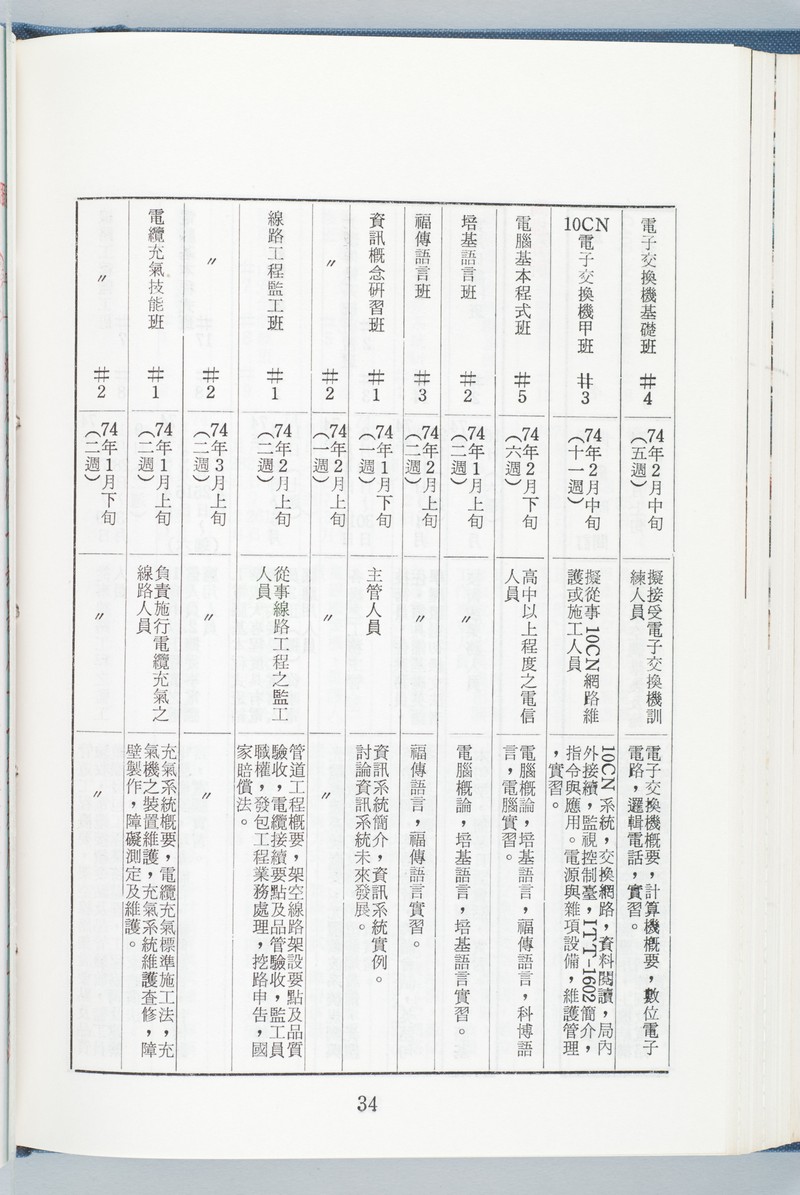 電子交換機基礎班 #4
74年2月中旬
（五週）
擬接受電子交換機訓
練人員
電子交換機概要，計算機概要，數位電子
電路，邏輯電話，實習。
10CN電子交換機甲班 #3
74年2月中旬
（十一週）
擬從事10CN網路維
護或施工人員
10CN系統，交換網路，資料閱讀，局內
外接續，監視控制臺，ITT-1602簡介，
指令與應用。電源與雜項設備，維護管理
，實習。
電腦基本程式班 #5
74年2月下旬
（六週）
高中以上程度之電信
人員
電腦概論，培基語言，福傳語言，科博語
言，電腦實習。
培基語言班 #2
74年1月上旬
（二週）
〃
電腦概論，培基語言，培基語言實習。
福傳語言班 #3
74年2月上旬
（二週）
〃
福傳語言，福傳語言實習。
資訊概念研習班 #1
74年1月下旬
（一週）
主管人員
資訊系統簡介，資訊系統實例。
討論資訊系統未來發展。
〃 #2
74年2月上旬
（一週）
〃
〃
線路工程監工班 #1
74年2月上旬
（二週）
從事線路工程之監工
人員
管道工程概要，架空線路架設要點及品質
驗收，電纜接續要點及品管驗收，監工員
職權，發包工程業務處理，挖路申告，國
家賠償法。
〃 #2
74年3月上旬
（二週）
〃
〃
電纜充氣技能班 #1
74年1月上旬
（二週）
負責施行電纜充氣之
線路人員
充氣系統概要，電纜充氣標準施工法，充
氣機之裝置維護，充氣系統維護查修，障
壁製作，障礙測定及維護。
〃 #2
74年1月下旬
（二週）
〃
〃
34